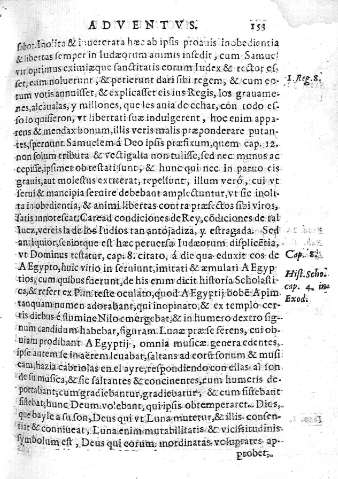 ADVENTVS. 153
bitor. Inolita & inueterata hæc ab ipsis proauis inobedientia
& libertas semper in Iudæorum animis insedit, cum Samuel
vir optimus eximiæque sanctitatis eorum Iudex & rector es-
set, eum noluerunt, & perierunt dari sibi regem, & cum eo-
rum votis annuisset, & explicasset eis ius Regis, los grauame-
nes, alcaualas, y millones, que les auia de echar, con todo es-
so lo quisieron, vt libertati suæ indulgerent, hoc enim apparens
& mendax bonum, illis veris malis præponderare putan-
tes, spernunt Samuelem á Deo ipsis præfixum, quem cap. 12.
non solum tributa & vectigalia non tulisse, sed nec munus ac-
cepisse, ipsimet obtestati sunt, & hunc qui nec in paruo eis
grauis, aut molestus extiterat, repellunt, illum verò, cui vt
serui & mancipia seruire debebant amplectuntur, vt sic ino-
lita inobedientia, & animi libertas contra præfectos sibi viros,
satis innotescat. Caread condiciones de Rey, cōdiciones de tal
Iuez, vereis la de los Iudios tan antojadiza, y estragada. Sed
antiquior, seniorque est hæc peruersa Iudæorum displicētia,
vt Dominus testatur, cap. 8. citato, á die qua eduxit eos de
AEgypto, huic vitio inseruiunt, imitati & æmulati AEgyp-
tios, cum quibus fuerunt, de his enim dicit historia Scholasti-
ca, & refert ex Plin. teste oculato, quod AEgyptij Bobē Apim
tanquam numen adorabant, qui inopinato & ex templo cer-
tis diebus é flumine Nilo emergebat, & in humero dextro sig-
num candidum habebat, figuram Lunæ præ se ferens, cui ob-
uiam prodibant AEgyptij, omnia musicæ genera edentes,
ipse autem se in aërem leuabat, saltans ad eorū sonum & musi-
cam, hazia cabriolas en el ayre, respondiendo con ellas al son
de su musica, & sic saltantes & concinentes, cum humeris de-
portabant; cum gradiebantur, gradiebatur, & cum sistebant
sistebat, hunc Deum volebant, qui ipsis obtemperaret. Dios,
que bayle a su son, Deus qui vt Luna mutetur, & illis consen-
tiat & conniueat, Luna enim mutabilitatis & vicissitudinis
symbolum est, Deus qui eorum inordinatas voluptates ap-
probet,
1. Reg. 8.
Cap. 8.
Hist. Scho.
cap. 4. in
Exod.